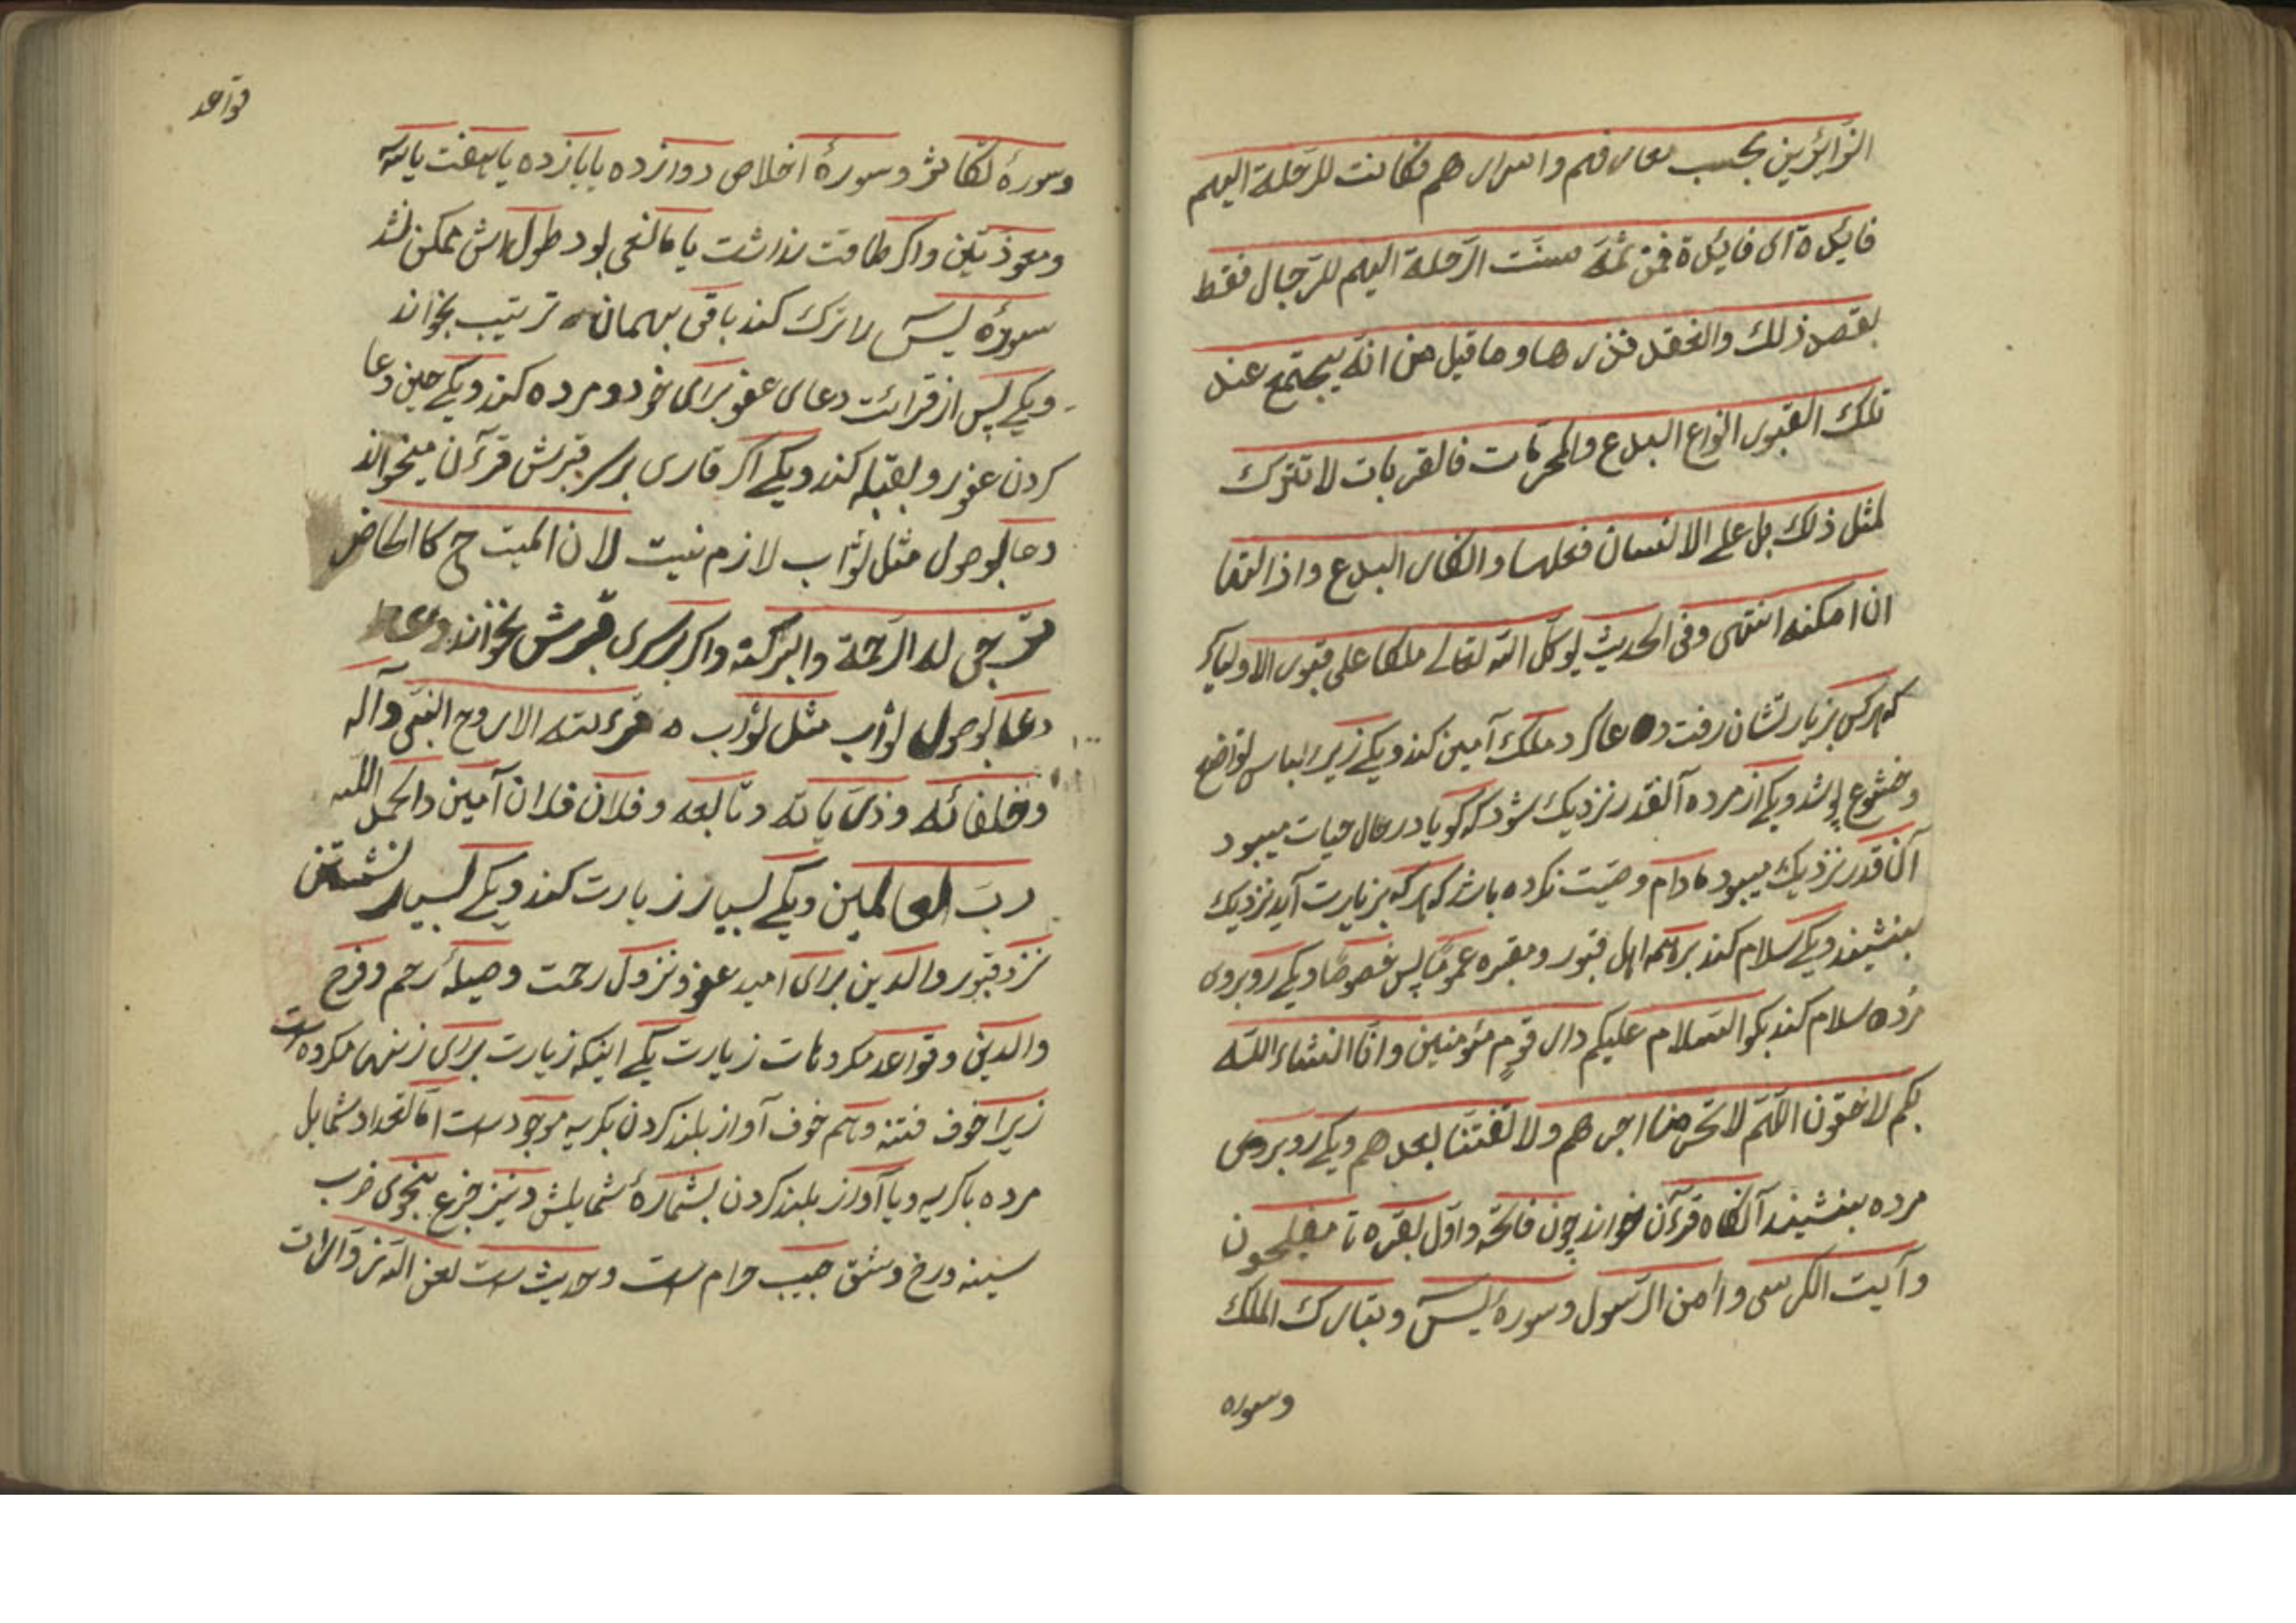 الزائرين بحسب معارفهم واسرارهم فكانت للرحلة اليهم
فايدة اى فايدة فمن ثمه سنت الرحلة اليهم للرجال فقط
بقصد ذلك والعقد نذرها وما قيل من انه يجتمع عند
تلك القبور انواع البدع والمحرمات فالقربات لا تترك
لمثل ذلك بل على الانسان فعلها وانكار البدع واذالتها
ان امكنه انتهى وفى الحديث يوكل الله تعالى ملكا على قبور الاوليا كه
كه هر كس بزيارتشان رفت و دعا كرد ملك آمين كند ويكى زير لباس تواضع
وخشوع پوشد ويكى از مرده آنقدر نزديك شود كه گويا در حال حيات ميبود
آنقدر نزديك ميبود مادام وصيت نكرده باشد كه هر كه بزيارت آيد نزديك
بنشيند ويكى سلام كند بر همه اهل قبور ومقبره عموما پس خصوصا ويكى روبروى
مرده سلام كند بگو السلام عليكم دار قوم مؤمنين وانا انشاء الله
بكم لاحقون اللهم لا تحرمنا اجرهم ولا تفتنا بعدهم ويكى روبروى
مرده بنشيند آنگاه قرآن خواند چون فاتحه واول بقره تا مفلحون
وآيت الكرسى وامن الرسول وسورهٔ يس وتبارك الملك
وسوره
قواعد
وسورهٔ تكاثر وسورهٔ اخلاص دوازده يا يازده يا هفت يا سه
ومعوذتين واكر طاقت نداشت يا مانعى بود طول اش ممكن نشد
سورهٔ يس را ترك كند باقى بهمان ترتيب بخواند
ويكى پس از قرائت دعاى عفو براى خود ومرده كند ويكى حين دعا
كردن عفو رو بقبله كند ويكى اكر قارى بر سر قبرش قرآن ميخواند
دعا بوصول مثل ثواب لازم نيست لان الميت ح كالحاضر
ترجى له الرحمة والبركة واكر بر سرى قبرش نخواند
دعا بوصول ثواب مثل ثواب قرءته الارواح النبى وآله
وخلفائه وذريّاته وتابعه وفلان فلان آمين والحمد لله
رب العالمين ويكى بسيار زيارت كند ويكى بسيار نشستن
نزد قبور والدين براى اميد عفو ونزول رحمت وصيلهٔ رحم وفرح
والدين وقواعد مكروهات زيارت يكى اينكه زيارت براى زنها مكروه است
زيرا خوف فتنه وهم خوف آواز بلند كردن بگريه موجود است اما تعداد شمايل
مرده با كريه ويا آواز بلند كردن بشمارهٔ شمايلش ونيز جزع بنحوى ضرب
سينه ورخ وشق جيب حرام است وحديث است لعن الله زوارات